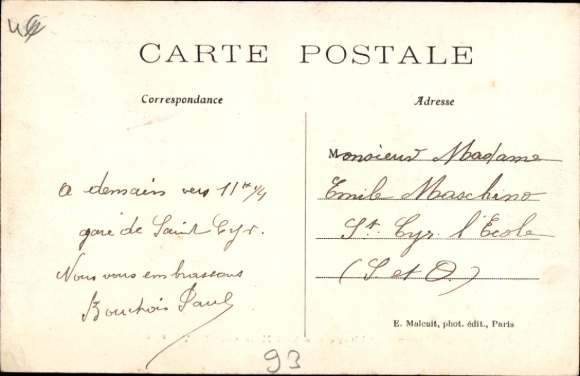 CARTE POSTALE
Correspondance
Adresse
a demain vers 11h 1/4
gare de Saint Cyr.
Nous vous embrassons
Bouchois Paul
Monsieur Madame
Emile Maschino
St. Cyr. l'Ecole
(S et O.)
E. Malcuit, phot. édit., Paris
93